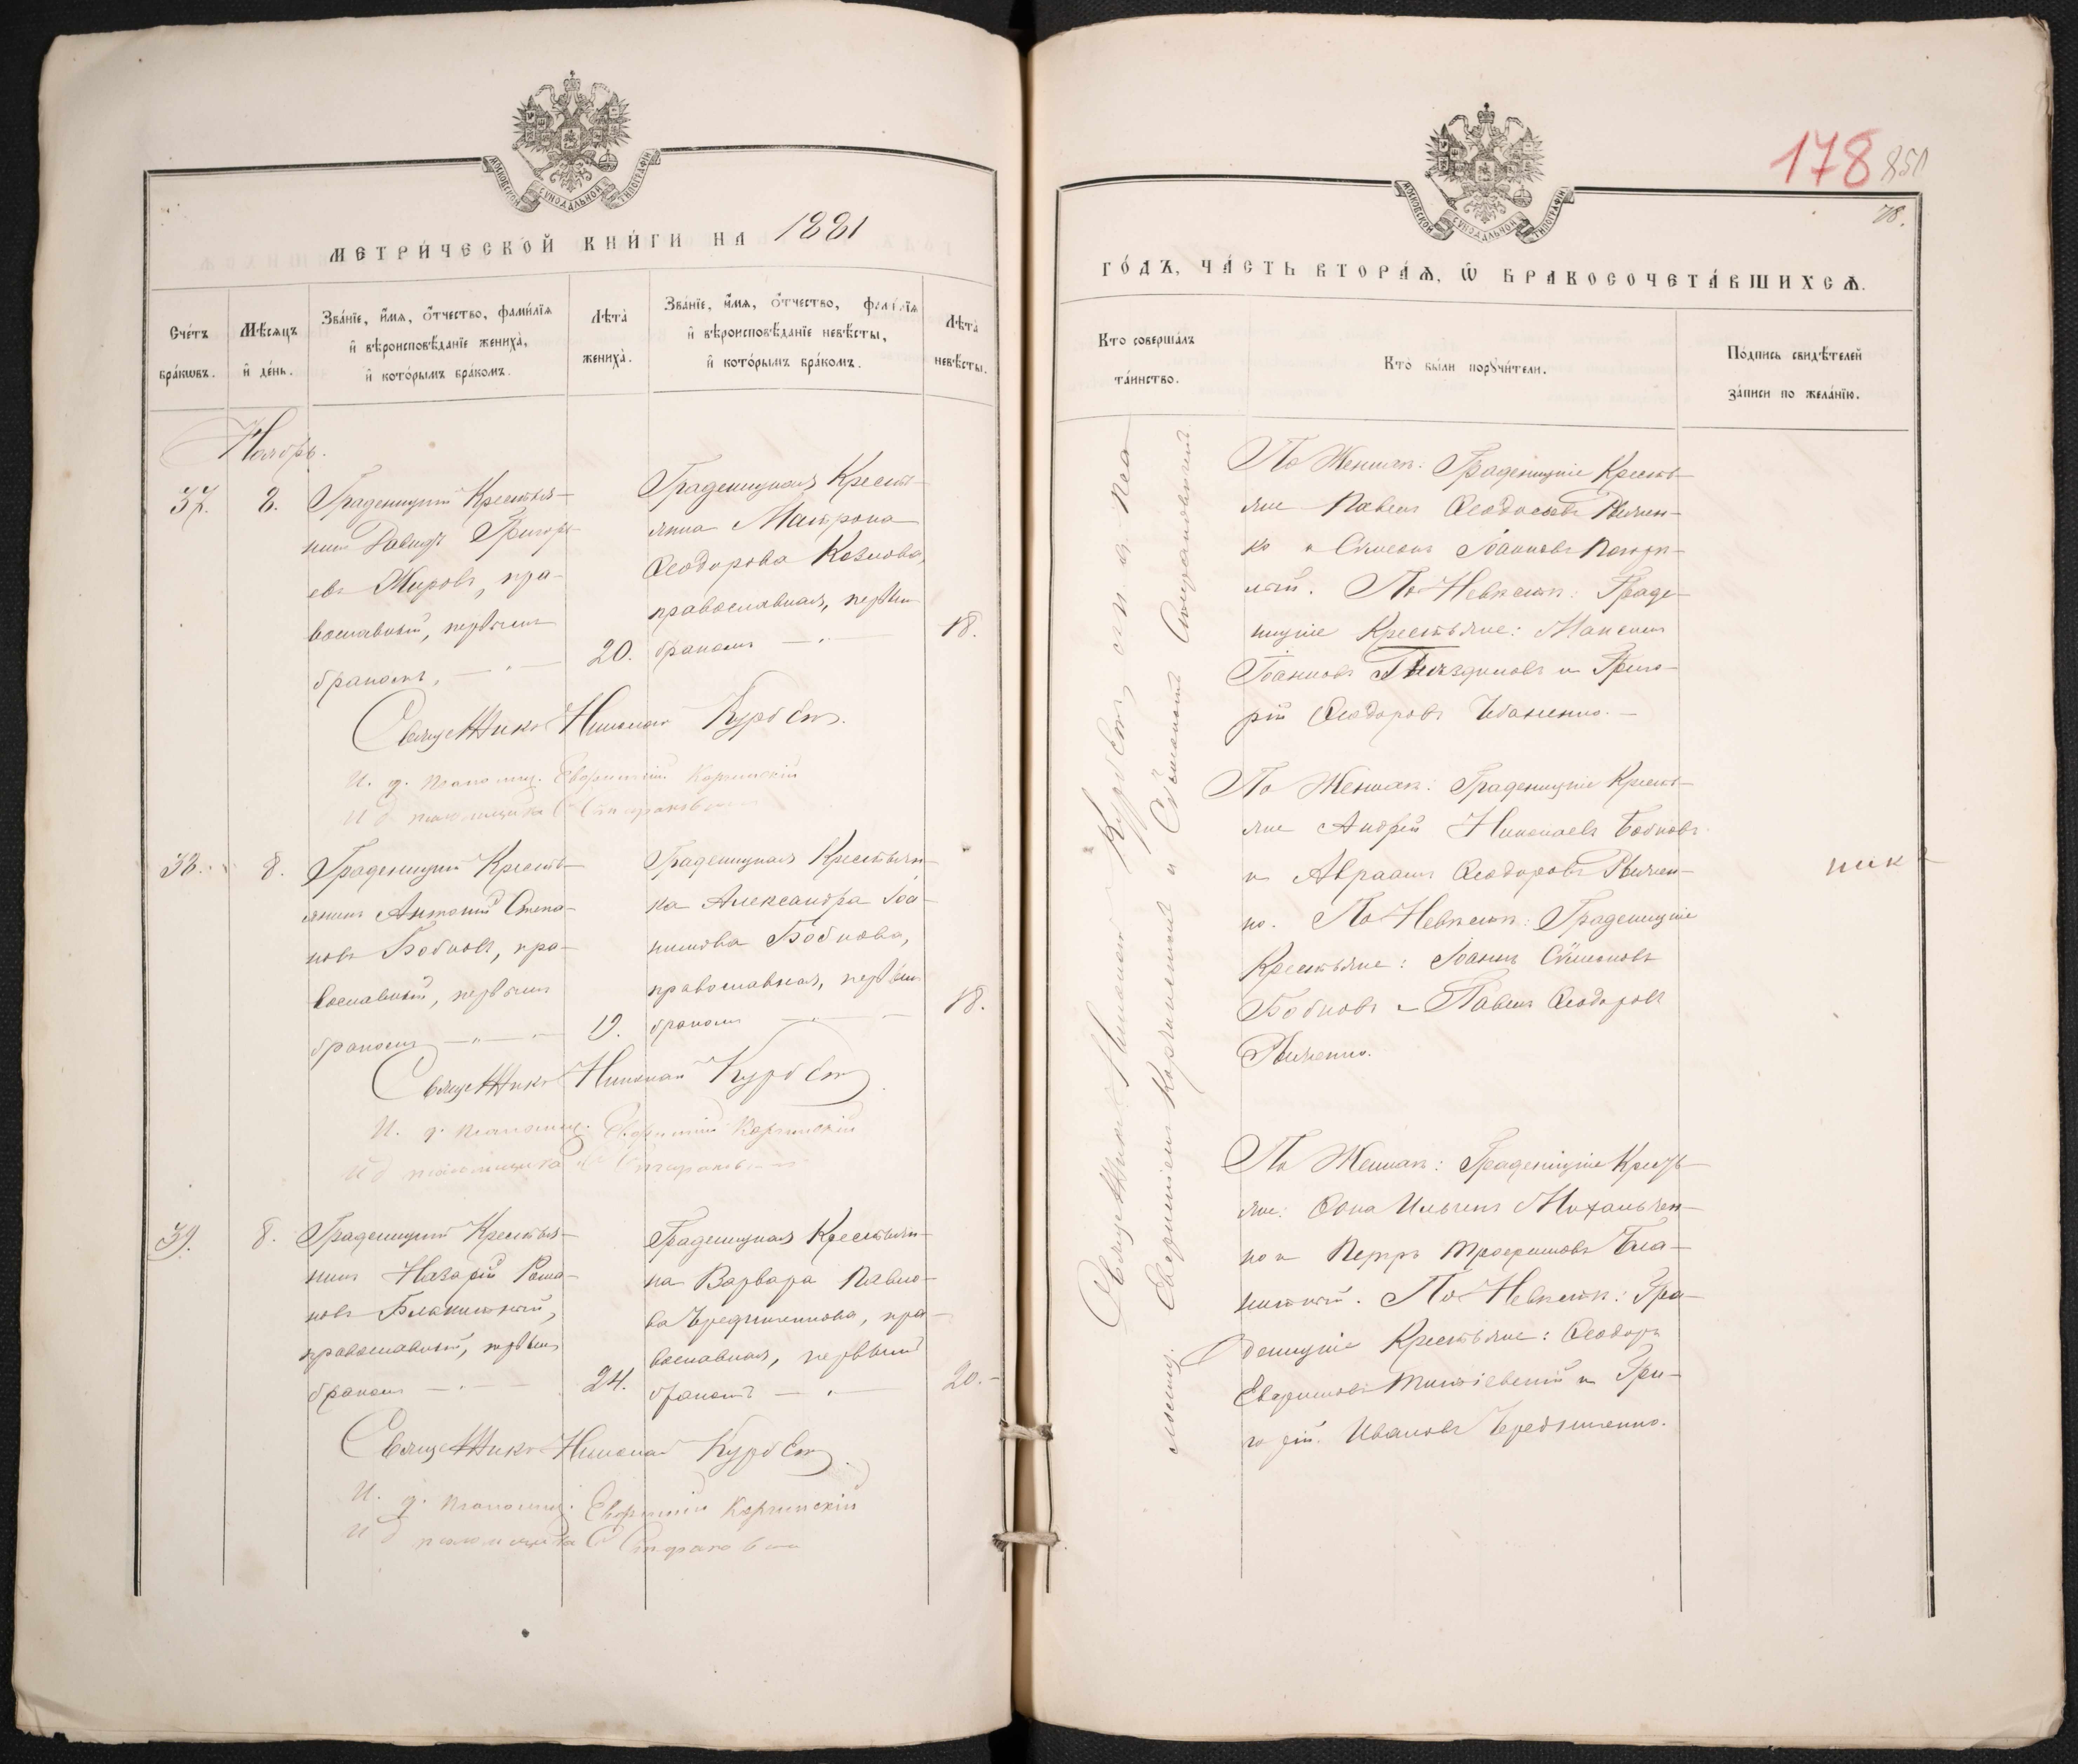 МОСКОВСКОЙ СѴНОДАЛЬНОЙ ТИПОГРАФІИ
МЕТРИ́ЧЕСКОЙ КНИ́ГИ НА 1881
Сче́тъ бра́кѡвъ.
Мѣ́сяцъ и҆ де́нь.
Зва́нїе, и҆́мѧ, ѻ҆́тчество, фами́лїѧ и҆ вѣроисповѣ́данїе жениха̀, и҆ кото́рымъ бра́комъ.
Лѣта̀ жениха̀.
Зва́нїе, и҆́мѧ, ѻ҆́тчество, фами́лїѧ и҆ вѣроисповѣ́данїе невѣ́сты, и҆ кото́рымъ бра́комъ.
Лѣта̀ невѣ́сты.
Ноябрь.
37.
8.
Граденицкій Крестья-
нинъ Давидъ Григорь-
евъ Жировъ, пра-
вославный, первымъ
бракомъ,
20.
Градницкая Кресть-
янка Матрона
Ѳеодорова Козлова,
православная, первым
бракомъ
18.
Священникъ Николай Курбетъ.
И. д. псаломщ. Евфимій Корчинскій
И д псаломщика С Стефановскій
38.
8.
Граденицкій Кресть-
янинъ Антоній Степа-
новъ Бобновъ, пра-
вославный, первымъ
бракомъ
19.
Граденицкая Крестьян-
ка Александра Іоа-
ннова Бобнова,
православная, первым
бракомъ
18.
Священникъ Николай Курбетъ
И. д. псаломщ. Евфимій Корчинскій
И д псаломщика С Стефановскій
39.
8.
Граденицкій Крестья-
нинъ Назарій Рома-
новъ Блакитный,
православный, первымъ
бракомъ
24.
Граденицкая Крестьян-
ка Варвара Павло-
ва Чередниченкова, пра-
вославная, первымъ
бракомъ
20.
Священникъ Николай Курбетъ
И. д. псаломщ. Евфимій Корчинскій
И д псаломщика С Стефановскій
178
851
78.
МОСКОВСКОЙ СѴНОДАЛЬНОЙ ТИПОГРАФІИ
ГО́ДЪ, ЧА́СТЬ ВТОРА́Ѧ, Ѽ БРАКОСОЧЕТА́ВШИХСѦ.
Кто̀ соверша́лъ та́инство.
Кто̀ бы́ли порꙋчи́тели.
По́дпись свидѣ́телей за́писи по жела́нїю.
Священникъ Николай Курбетъ, съ и. д. Пса-
ломщ. Евфиміемъ Корчинскимъ и Сѵмеономъ Стефановскимъ
По Женихѣ: Граденицкіе Кресть-
яне Павелъ Ѳеодосіевъ
и Сѵмеонъ Іоанновъ
По Невѣстѣ: Граде-
ницкіе Крестьяне: Максимъ
Іоанновъ Гнездиловъ и Григо-
рій Ѳеодоровъ Чебаненко.
По Женихѣ: Граденицкіе Кресть-
яне Андрей Николаевъ Бобновъ
и Авраамъ Ѳеодоровъ
По Невѣстѣ: Граденицкіе
Крестьяне: Іоаннъ Сѵмеоновъ
Бобновъ и Павелъ Ѳеодоровъ
По Женихѣ: Граденицкіе Кресть-
яне: Ѳома Ильинъ Михальчен-
ко и Петръ Трофимовъ Бла-
китный. По Невѣстѣ: Гра-
деницкіе Крестьяне: Ѳеодоръ
Евфимовъ и Гри-
горій Ивановъ Чередниченко.